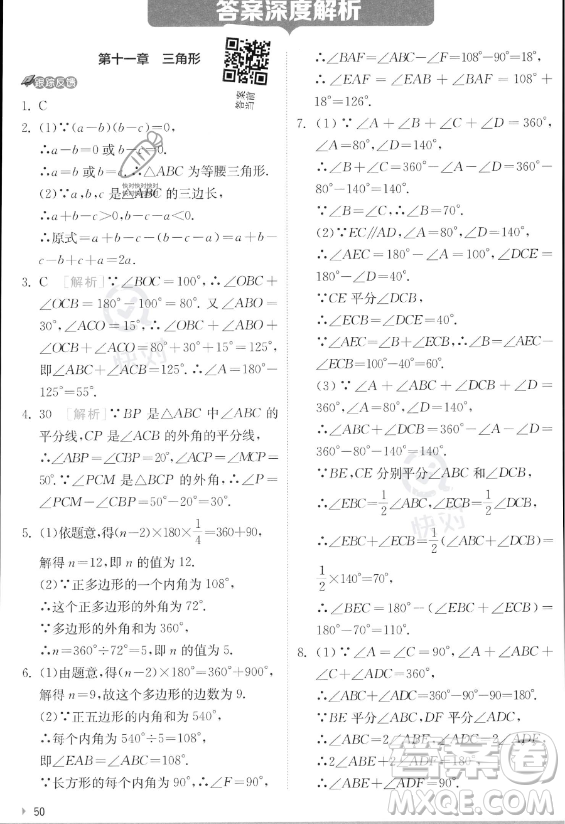 答案深度解析
第十一章　三角形
答案
当前
跟踪反馈
1. C
2. (1)∵(a−b)(b−c)=0,
∴a−b=0或b−c=0,
∴a=b或b=c,∴△ABC为等腰三角形.
(2)∵a,b,c是△ABC的三边长,
∴a+b−c>0,a−b−c<0.
∴原式=a+b−c−(a−b−c)=a+b−
c−b+c+a=2a.
3. C [解析]∵∠BOC=100°,∴∠OBC+
∠OCB=180°−100°=80°.又∠ABO=
30°,∠ACO=15°,∴∠OBC+∠ABO+
∠OCB+∠ACO=80°+30°+15°=125°,
即∠ABC+∠ACB=125°.∴∠A=180°−
125°=55°.
4. 30 [解析]∵BP是△ABC中∠ABC的
平分线,CP是∠ACB的外角的平分线,
∴∠ABP=∠CBP=20°,∠ACP=∠PCM=
50°.∵∠PCM是△BCP的外角,∴∠P=
∠PCM−∠CBP=50°−20°=30°.
5. (1)依题意,得(n−2)×180×1/4=360+90,
解得n=12,即n的值为12.
(2)∵正多边形的一个内角为108°,
∴这个正多边形的外角为72°.
∵多边形的外角和为360°,
∴n=360°÷72°=5,即n的值为5.
6. (1)由题意,得(n−2)×180°=360°×3+180°,
解得n=9,故这个多边形的边数为9.
(2)∵正五边形的内角和为540°,
∴每个内角为540°÷5=108°,
∴∠E=∠EAB=108°.
∵长方形的每个内角为90°,∴∠F=90°,
∴∠BAF=∠EAB−∠FAE=108°−90°=18°,
∴∠EAF=∠EAB+∠BAF=108°+
18°=126°.
7. (1)∵∠A+∠B+∠C+∠D=360°,
∠A=140°,∠D=80°,
∴∠B+∠C=360°−∠A−∠D=360°−
140°−80°=140°.
∵∠B=∠C,∴∠B=70°.
(2)∵EC∥AD,∠A=140°,∠D=80°,
∴∠AEC=180°−∠A=40°,∠DCE=
180°−∠D=100°.
∵CE平分∠DCB,
∴∠ECB=∠DCE=100°,
∴∠B=∠AEC... 
(3)∵∠A+∠ABC+∠BCD+∠D=360°,
∴∠ABC+∠DCB=360°−∠A−∠D=
360°−140°−80°=140°.
∵BE,CE分别平分∠ABC,∠DCB,
∴∠EBC=1/2∠ABC,∠ECB=1/2∠DCB,
∴∠EBC+∠ECB=1/2(∠ABC+∠DCB)=
1/2×140°=70°,
∴∠BEC=180°−(∠EBC+∠ECB)=
180°−70°=110°.
8. (1)∵∠A=∠C=90°,∠A+∠ABC+
∠C+∠ADC=360°,
∴∠ABC+∠ADC=360°−90°−90°=180°.
∵BE平分∠ABC,DF平分∠ADC,
∴2∠ABE+2∠ADF=180°,
∴∠ABE+∠ADF=90°.
50
快对
答案卷
MXQE.COM